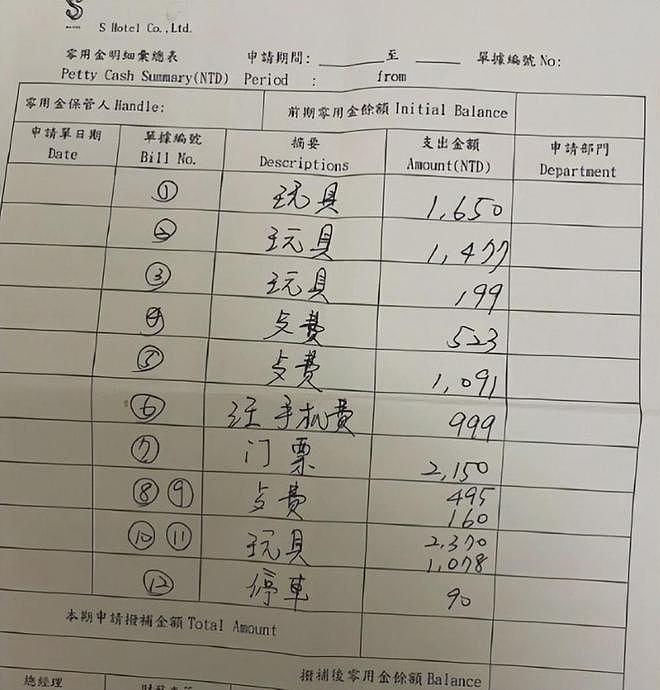 S
S Hotel Co.,Ltd.
零用金明細彙總表 申請期間: 至 單據編號 No:
Petty Cash Summary(NTD) Period : from
零用金保管人 Handle: 前期零用金餘額 Initial Balance
申請單日期 單據編號 摘要 支出金額 申請部門
Date Bill No. Descriptions Amount(NTD) Department
① 玩具 1,650
② 玩具 1,477
③ 玩具 199
④ 餐費 523
⑤ 餐費 1,091
⑥ 汪手机費 999
⑦ 门票 2,150
⑧ ⑨ 餐費 495
160
⑩ ⑪ 玩具 2,370
1,078
⑫ 停車 90
本期申請撥補金額 Total Amount
撥補後零用金餘額 Balance
總經理